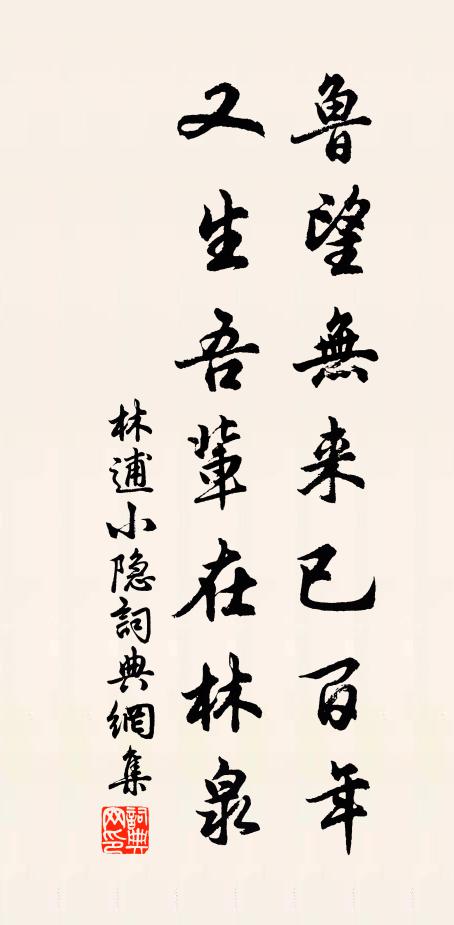 魯望無来已百年
又生吾輩在林泉
林逋小隐詞典網集
詞典网印